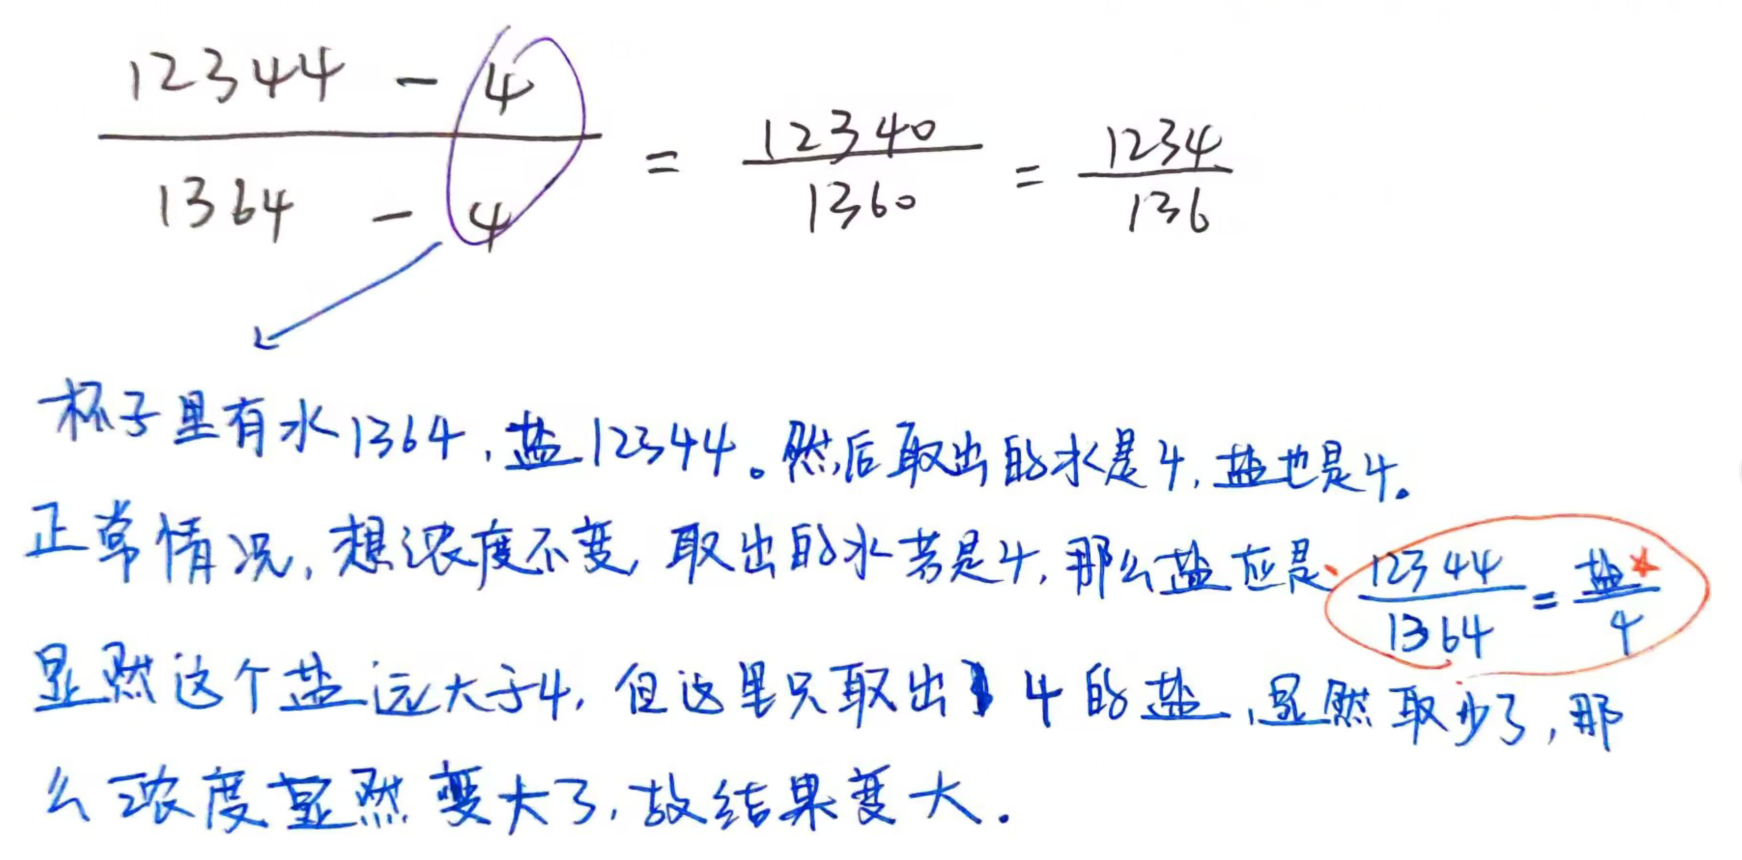 12344 - 4 / 1364 - 4 = 12340 / 1360 = 1234 / 136
杯子里有水1364,盐12344。然后取出的水是4,盐也是4。
正常情况,想浓度不变,取出的水若是4,那么盐应是、12344 / 1364 = 盐* / 4
显然这个盐远大于4,但这里只取出 4的盐,显然取少了,那
么浓度显然变大了,故结果变大.